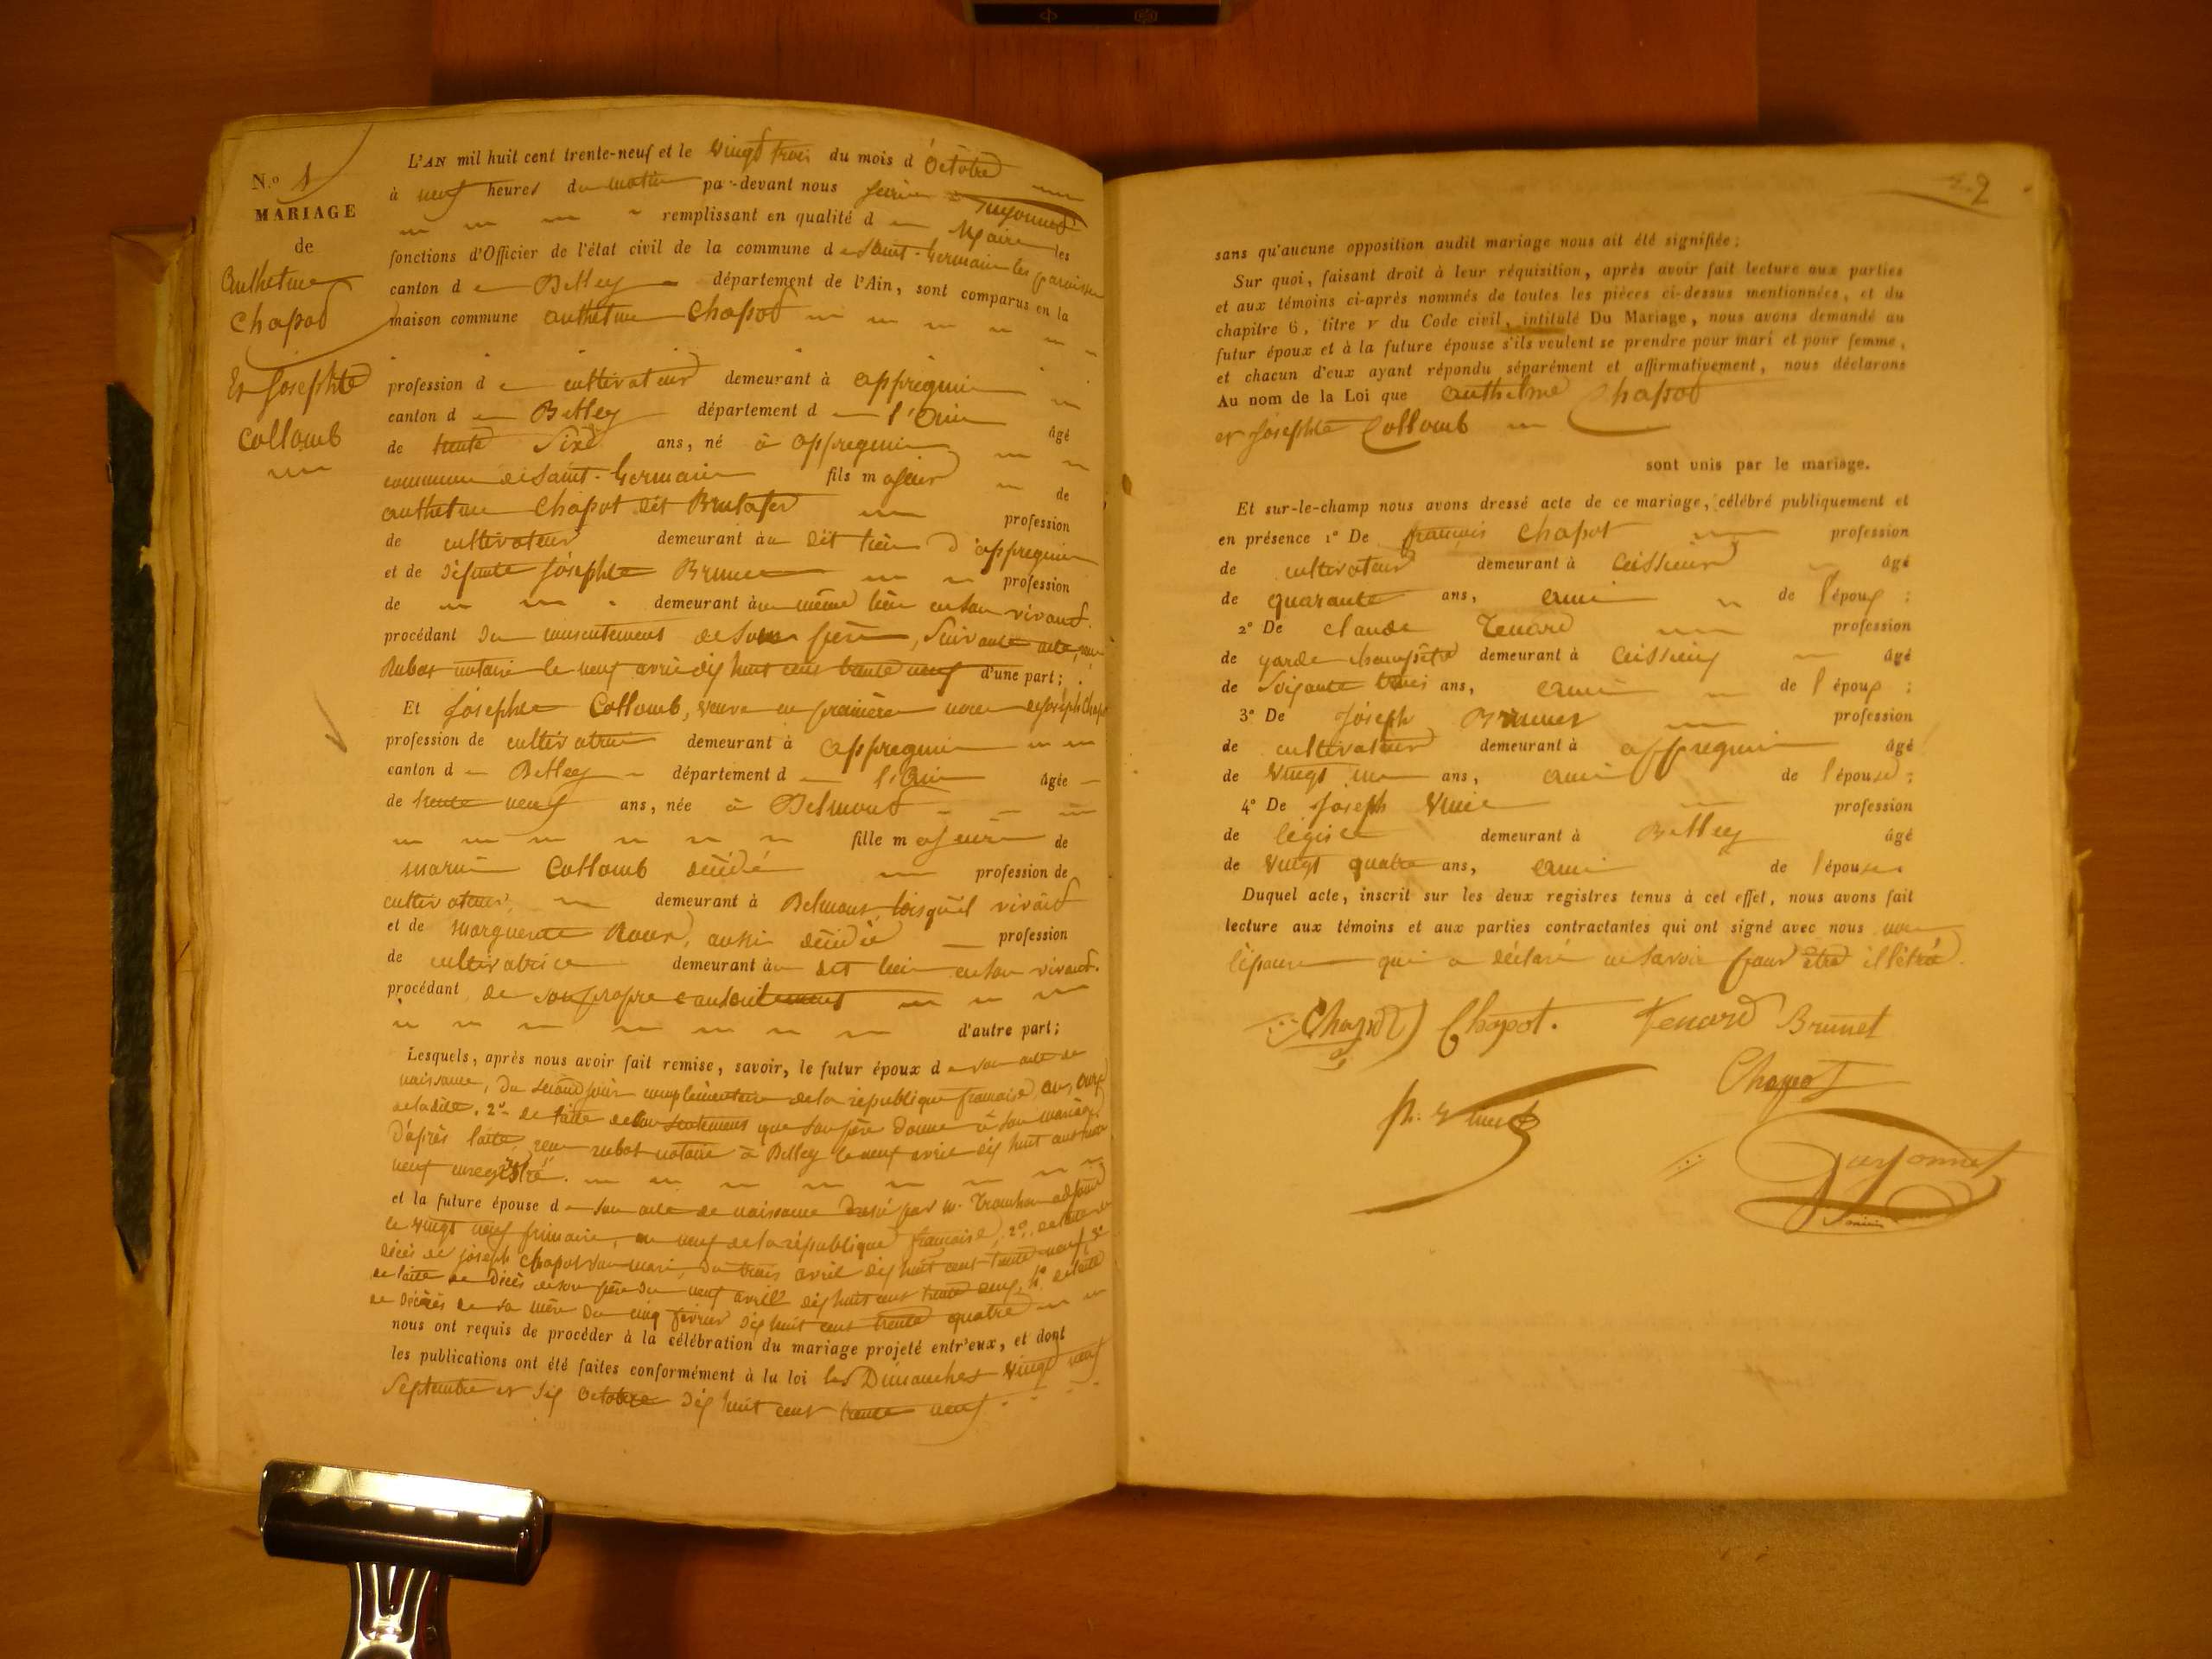 N.º 1
MARIAGE
de
Anthelme
Chapot
Et Josephte
Collomb
L'AN mil huit cent trente-neuf et le vingt trois du mois d'Octobre
à neuf heures du matin par-devant nous Guyonnet
remplissant en qualité de Maire les
fonctions d'Officier de l'état civil de la commune de Saint-Germain les paroisses
canton de Belley département de l'Ain, sont comparus en la
maison commune anthelme Chapot
profession de cultivateur demeurant à appregnin
canton de Belley département de l'Ain âgé
de trente Six ans, né à appregnin
commune de Saint-Germain fils majeur de
anthelme Chapot dit profession
de cultivateur demeurant au dit lieu d'appregnin
et de défunte Josephte Brunet profession
de demeurant au même lieu en son vivant.
procédant du consentement de son père, Suivant acte, reçu
Rubat notaire le neuf avril dix huit cent trente neuf d'une part;
Et Josephte Collomb, veuve en première noce de Joseph Chapot
profession de cultivatrice demeurant à appregnin
canton de Belley département de l'Ain âgée
de trente neuf ans, née à Belmont
fille majeure de
marin Collomb décédé profession de
cultivateur, demeurant à Belmont, lorsqu'il vivait
et de marguerite Roux, aussi décédée profession
de cultivatrice demeurant au dit lieu en son vivant.
procédant de son propre consentement
d'autre part;
Lesquels, après nous avoir fait remise, savoir, le futur époux de son acte de
naissance, du second jour complémentaire de la république française, an onze
de la dite, 2º de l'acte de consentement que son père donne à son mariage
d'après l'acte, reçu rubat notaire à Belley le neuf avril dix huit cent trente
neuf enregistré.
et la future épouse de son acte de naissance dressé par m. adjoint
le vingt neuf frimaire, an neuf de la république française, 2º de l'acte de
décès de joseph Chapot son mari, du trois avril dix huit cent trente neuf 3º
de l'acte de décès de son père du neuf avril dix huit cent trente deux, 4º de l'acte
de décès de sa mère du cinq février dix huit cent trente quatre
nous ont requis de procéder à la célébration du mariage projeté entr'eux, et dont
les publications ont été faites conformément à la loi les Dimanches vingt neuf
Septembre et six Octobre dix huit cent trente neuf.
2
sans qu'aucune opposition audit mariage nous ait été signifiée;
Sur quoi, faisant droit à leur réquisition, après avoir fait lecture aux parties
et aux témoins ci-après nommés de toutes les pièces ci-dessus mentionnées, et du
chapitre 6, titre v du Code civil, intitulé Du Mariage, nous avons demandé au
futur époux et à la future épouse s'ils veulent se prendre pour mari et pour femme,
et chacun d'eux ayant répondu séparément et affirmativement, nous déclarons
Au nom de la Loi que anthelme Chapot
et Josephte Collomb
sont unis par le mariage.
Et sur-le-champ nous avons dressé acte de ce mariage, célébré publiquement et
en présence 1º De françois Chapot profession
de cultivateur demeurant à Ceissieux âgé
de quarante ans, ami de l'époux;
2º De Claude Tenard profession
de garde champêtre demeurant à Ceissieux âgé
de soixante trois ans, ami de l'époux;
3º De Joseph Brunet profession
de cultivateur demeurant à appregnin âgé
de vingt un ans, ami de l'épouse;
4º De Joseph profession
de légiste demeurant à Belley âgé
de vingt quatre ans, ami de l'épouse
Duquel acte, inscrit sur les deux registres tenus à cet effet, nous avons fait
lecture aux témoins et aux parties contractantes qui ont signé avec nous non
l'épouse qui a déclaré ne savoir pour être illétré.
Chapot Chapot. Tenard Brunet
Chapot
Guyonnet